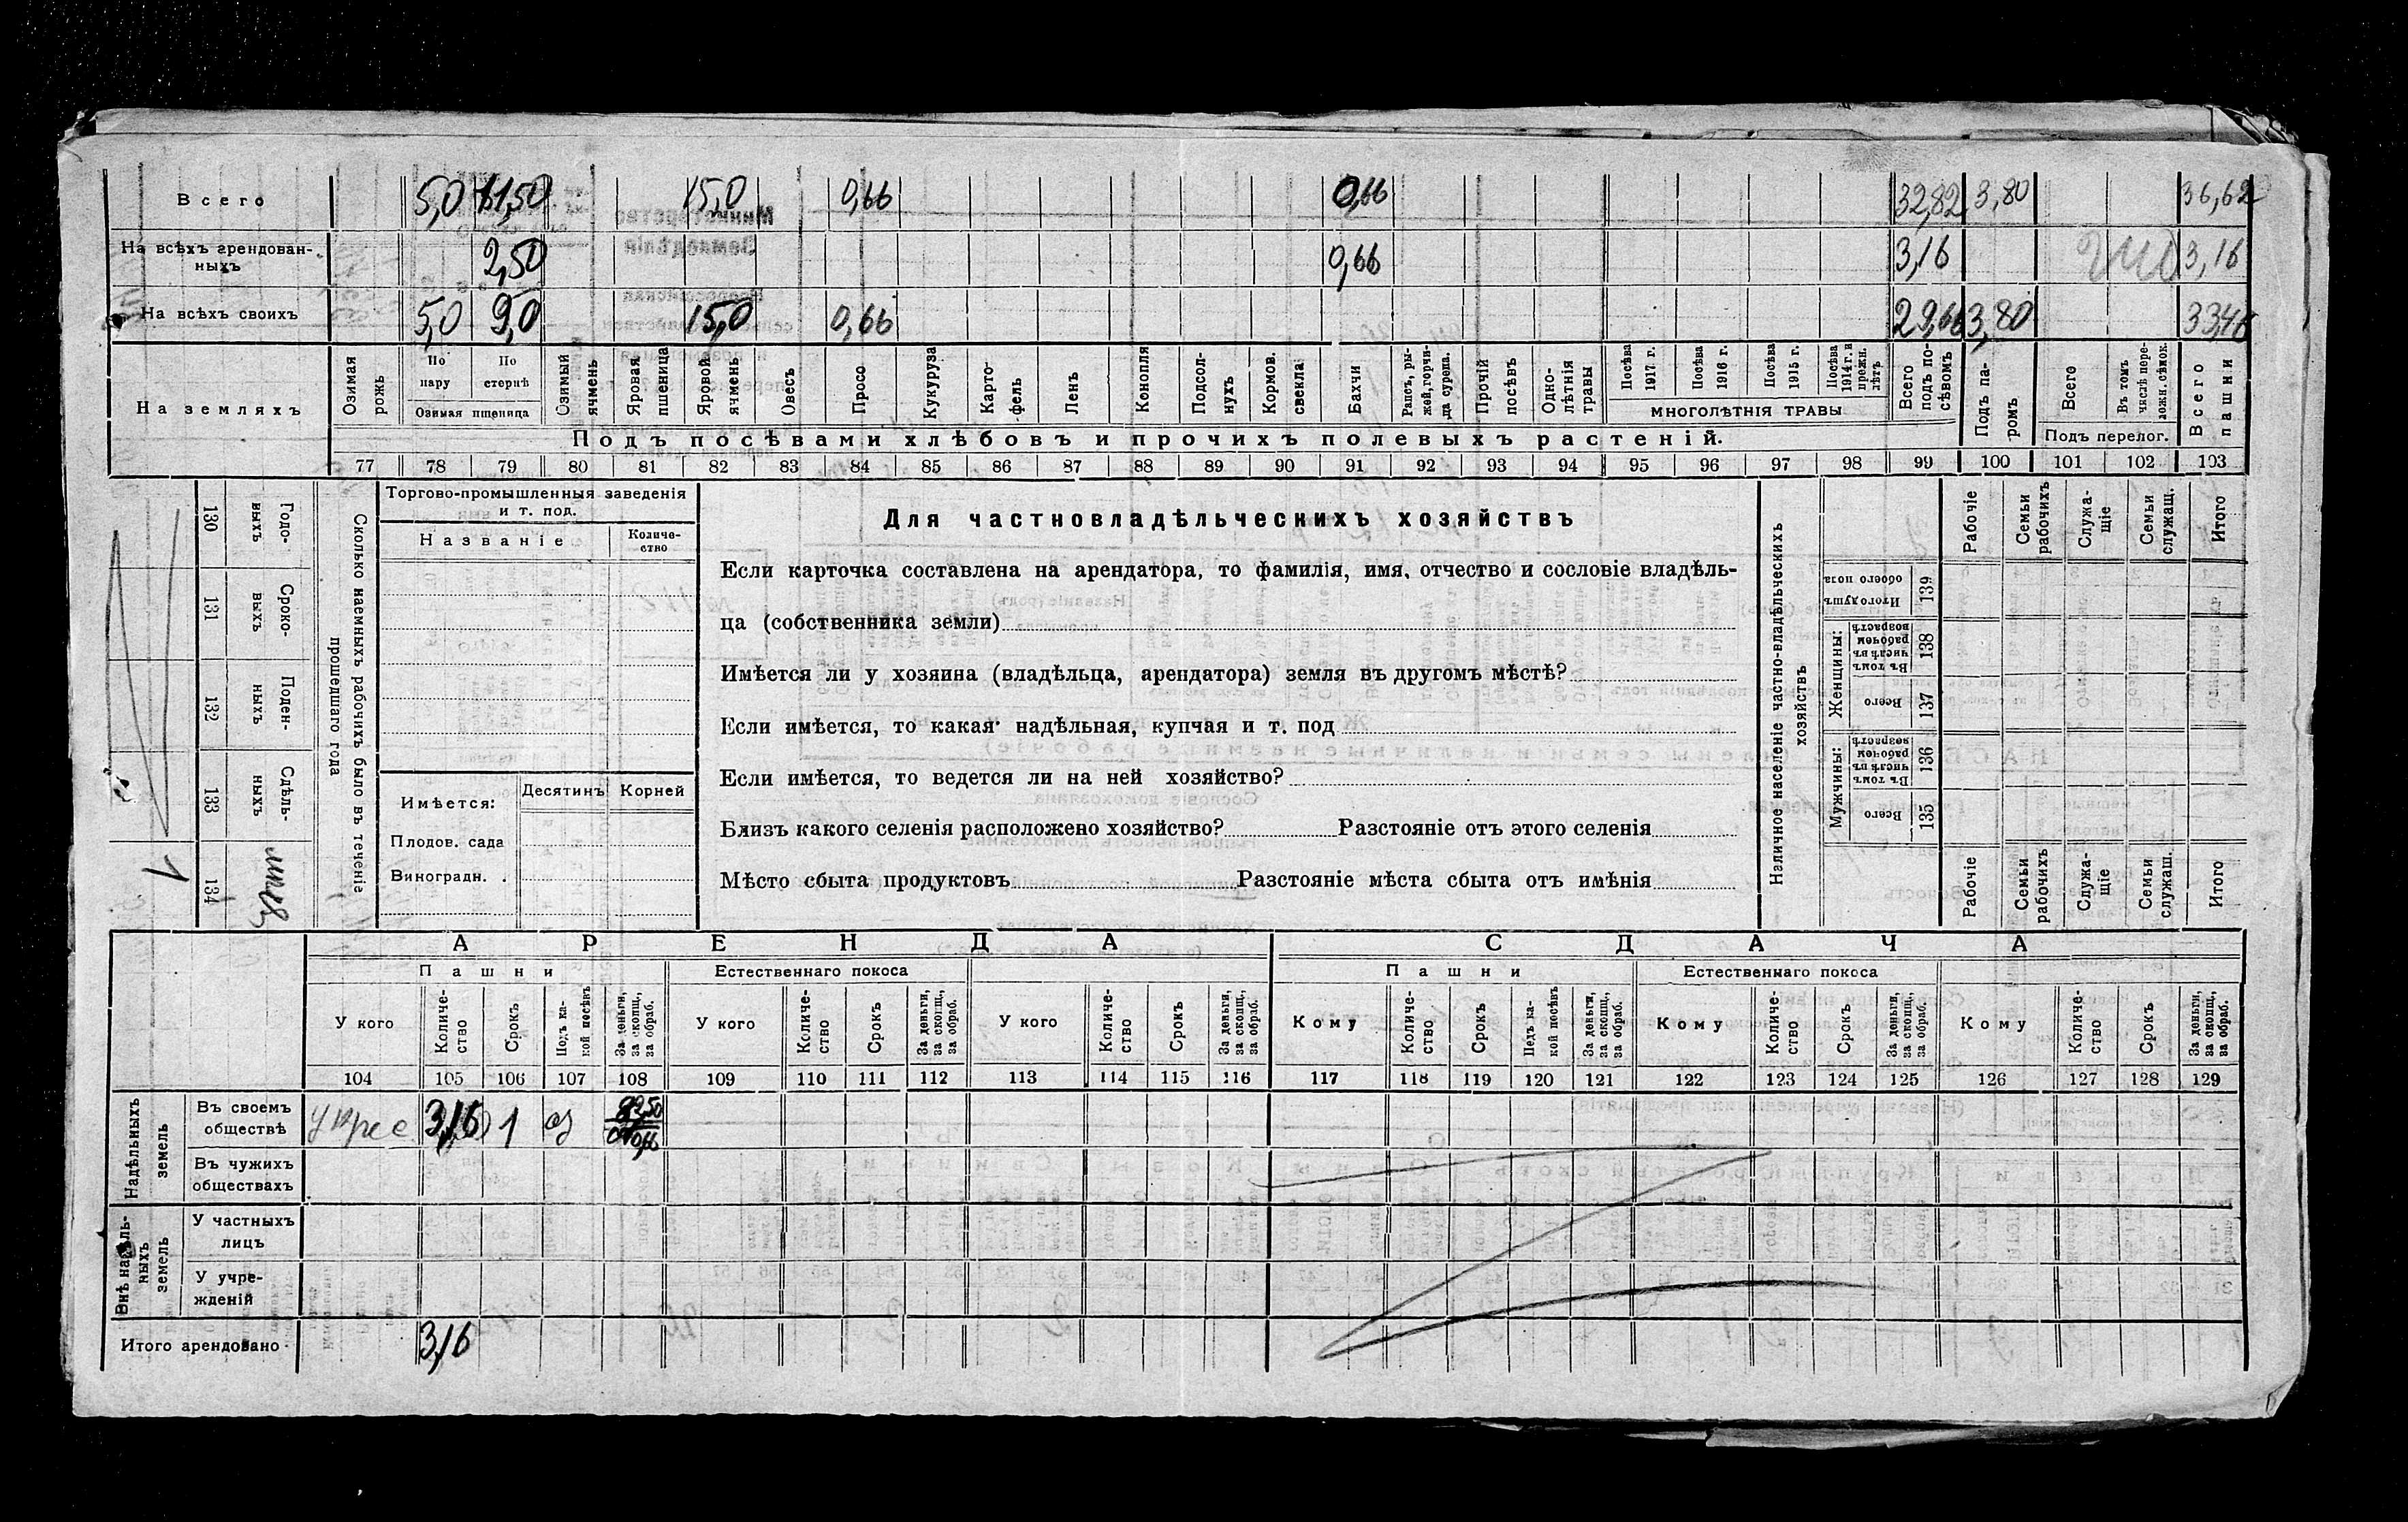 Всего 5,0 11,50 15,0 0,66 0,66 32,82 3,80 36,62
На всѣхъ арендован-
ныхъ 2,50 0,66 3,16 3,16
На всѣхъ своихъ 5,0 9,0 15,0 0,66 29,66 3,80 33,46
На земляхъ
Озимая рожь
По пару
По стернѣ
Озимая пшеница
Озимый ячмень
Яровая пшеница
Яровой ячмень
Овесъ
Просо
Кукуруза
Карто-
фель
Ленъ
Конопля
Подсол-
нухъ
Кормов. свекла
Бахчи
Рапсъ, ры-
жей, горчи-
ца сурепа.
Прочій посѣвъ
Одно-
лѣтнія травы
Посѣва 1917 г.
Посѣва 1916 г.
Посѣва 1915 г.
Посѣва 1914 г. и прежн. лѣтъ
МНОГОЛѢТНІЯ ТРАВЫ
Всего подъ по-
сѣвомъ
Подъ па-
ромъ
Всего
Въ томъ числѣ пере-
ложн. сѣнок.
Подъ перелог.
Всего пашни
Подъ посѣвами хлѣбовъ и прочихъ полевыхъ растеній.
77 78 79 80 81 82 83 84 85 86 87 88 89 90 91 92 93 94 95 96 97 98 99 100 101 102 103
130 Годо-
выхъ
131 Сроко-
выхъ
132 Поден-
ныхъ
133 Сдѣль-
ныхъ
134
1
Сколько наемныхъ рабочихъ было въ теченіе
прошедшаго года
Торгово-промышленныя заведенія
и т. под.
Названіе
Количе-
ство
Имѣется:
Десятинъ Корней
Плодов. сада
Виноградн. .
Для частновладѣльческихъ хозяйствъ
Если карточка составлена на арендатора, то фамилія, имя, отчество и сословіе владѣль-
ца (собственника земли)
Имѣется ли у хозяина (владѣльца, арендатора) земля въ другомъ мѣстѣ?
Если имѣется, то какая: надѣльная, купчая и т. под
Если имѣется, то ведется ли на ней хозяйство?
Близъ какого селенія расположено хозяйство? Разстояніе отъ этого селенія
Мѣсто сбыта продуктовъ Разстояніе мѣста сбыта отъ имѣнія
Наличное населеніе частно-владѣльческихъ
хозяйствъ
Рабочіе
Семьи рабочихъ
Служа-
щіе
Семьи служащ.
Итого
Итого душъ обоего пола 139
Женщины:
Въ томъ числѣ въ рабочем возрастѣ 138
Всего 137
Мужчины:
Въ томъ числѣ въ рабочем возрастѣ 136
Всего 135
Рабочіе
Семьи рабочихъ
Служа-
щіе
Семьи служащ.
Итого
АРЕНДА СДАЧА
Пашни Естественнаго покоса Пашни Естественнаго покоса
У кого
Количе-
ство
Срокъ
Подъ ка-
кой посѣвъ
За деньги, за скопщ., за обраб.
У кого
Количе-
ство
Срокъ
За деньги, за скопщ., за обраб.
У кого
Количе-
ство
Срокъ
За деньги, за скопщ., за обраб.
Кому
Количе-
ство
Срокъ
Подъ ка-
кой посѣвъ
За деньги, за скопщ., за обраб.
Кому
Количе-
ство
Срокъ
За деньги, за скопщ., за обраб.
Кому
Количе-
ство
Срокъ
За деньги, за скопщ., за обраб.
104 105 106 107 108 109 110 111 112 113 114 115 116 117 118 119 120 121 122 123 124 125 126 127 128 129
Надѣльныхъ земель
Въ своемъ
обществѣ 3,16 1 оз
Въ чужихъ
обществахъ
Внѣ надѣль-
ныхъ земель
У частныхъ
лицъ
У учре-
жденій
Итого арендовано 3,16